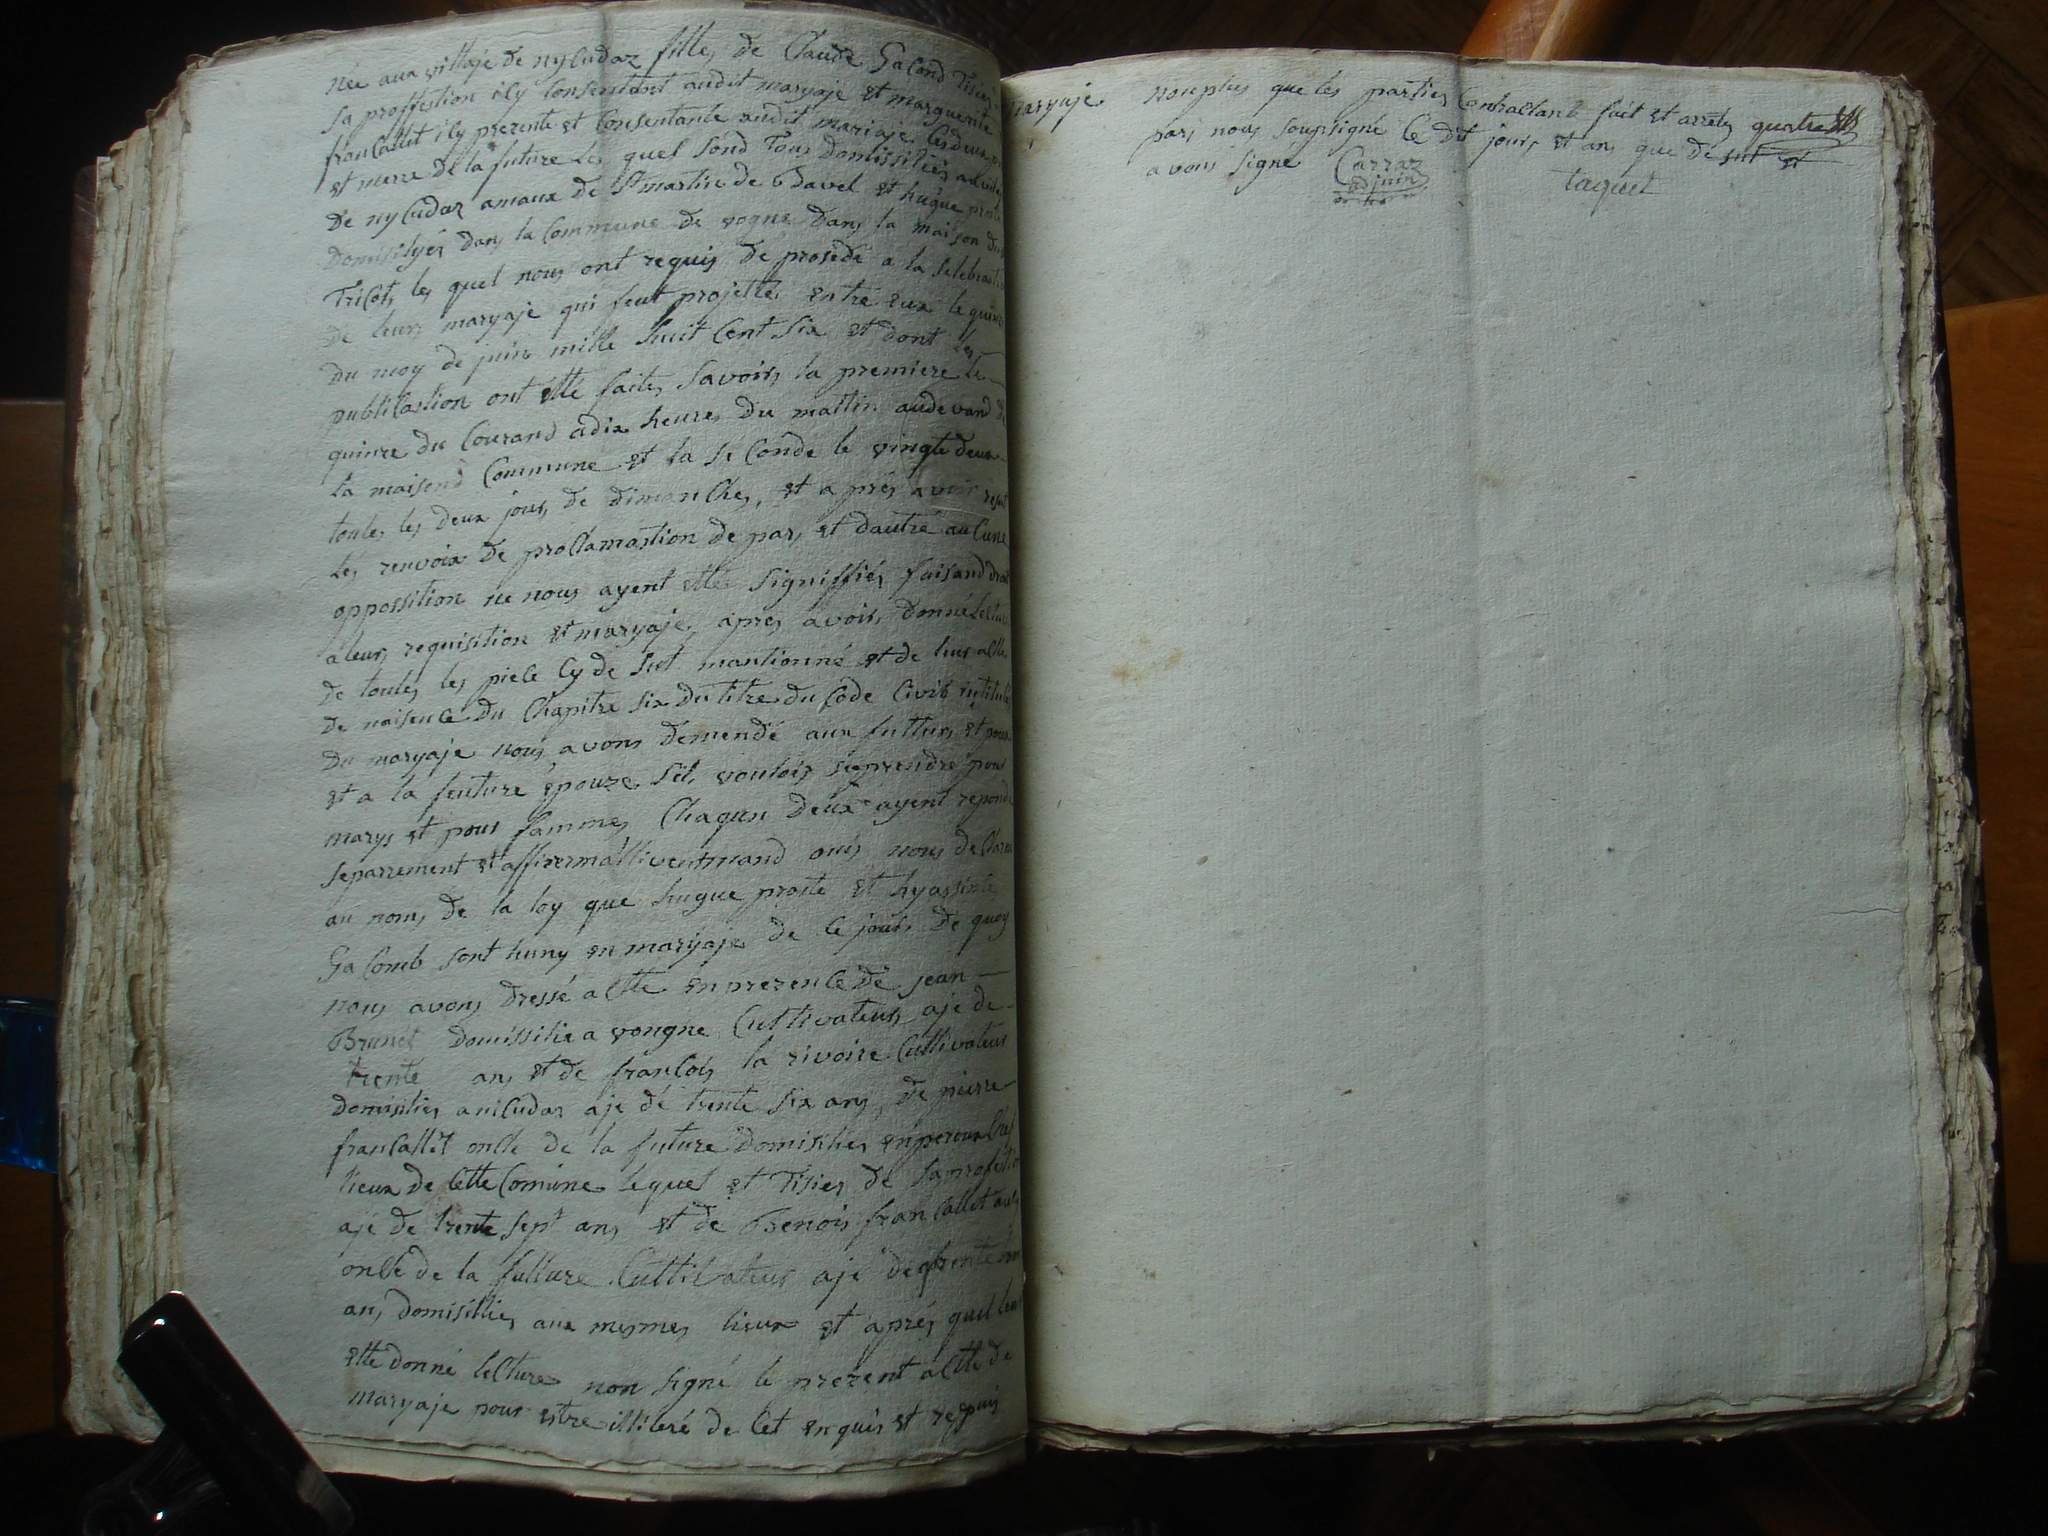 née aux villaje de nyCudaz fille, de Claude Gacond Tisier
sa proffestion ily Consentant audit maryaje et marguerite
franCallit ily prezente et Consentante audit mariaje, Ces deux
et merre de la future les quel sond Tous domissiliés au
de nyCudaz amaux de St martin de Bavel et hugue proste
domisilyés dans la Commune de vogne dans la maison
Tricot, les quel nous ont requis de prosédé a la selebration
de leur, maryaje qui feut projetté, entre eux le quinze
du moy de juin mille huit Cent six et dont les
publication ont étté faites Savoir, la premiere le
quinze du Courand adix heure, du mattin audevand de
la maisond Commune et la seConde le vingte deux
toute, les deux jour, de dimanche, et a prés avoir
les renvoix de proClamastion de par, et dautre auCune
oppossition ne nous ayent etté signiffiée, faisand droit
a leur, requisition et maryaje, apres avoir, donné lecture
de toutes, les piece Cy de sut mantionné et de leur acte
de naisence du Chapitre six du titre du Code Civil intitulé
du maryaje nous avons démendé aux futtur, et poux
et a la feuture epouze, Sil, vouloir séprendre pour
marys et pour famme, Chaqun deux ayent répondu
séparrement et affirermattiventmand oui, nous déClaron
au nom, de la loy que hugue proste et hyassinte
GaComb sont huny en maryaje de Ce jour, de quoy
nous avons dressé actte en prezence de jean
Brunet domissilie a vongne Cultivateur, aje de
trente ans et de franCois la rivoire Cultivateur
domisilier a niCudaz aje de trente six ans, de pierre
franCallet oncle de la future domisilier en
lieux de Cette Comune lequel et Tisier de sa profession
aje de trente sept ans et de Benois franCallet aussi
oncle de la future Cultivateur aje de trente
an, domisilier, aux mesmes lieux et aprés quil leur
etté donné leCture non signé le prezent actte de
maryaje pour estre illiteré de Cet enquis et requis
maryaje. nonplus que les parties Contractant fait et arreté quatre
par, nous soussigné le dit jour, et an, que de sut et
avons signe Carraz taquet
adjoin